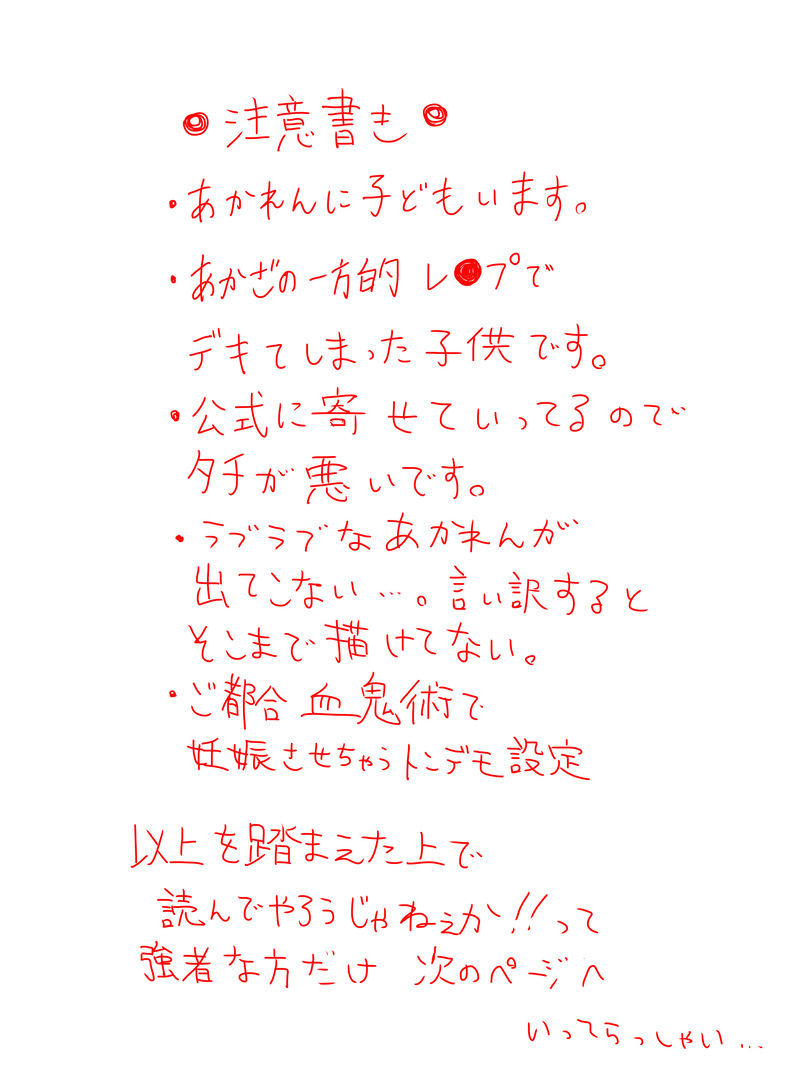 注意書き
・あかれんに子どもいます。
・あかざの一方的 レ●プで
デキてしまった子供です。
・公式に寄せていってるので
タチが悪いです。
・ラブラブなあかれんが
出てこない…。言い訳すると
そこまで描けてない。
・ご都合血鬼術で
妊娠させちゃうトンデモ設定
以上を踏まえた上で
読んでやろうじゃねぇか!!って
強者な方だけ 次のページへ
いってらっしゃい…